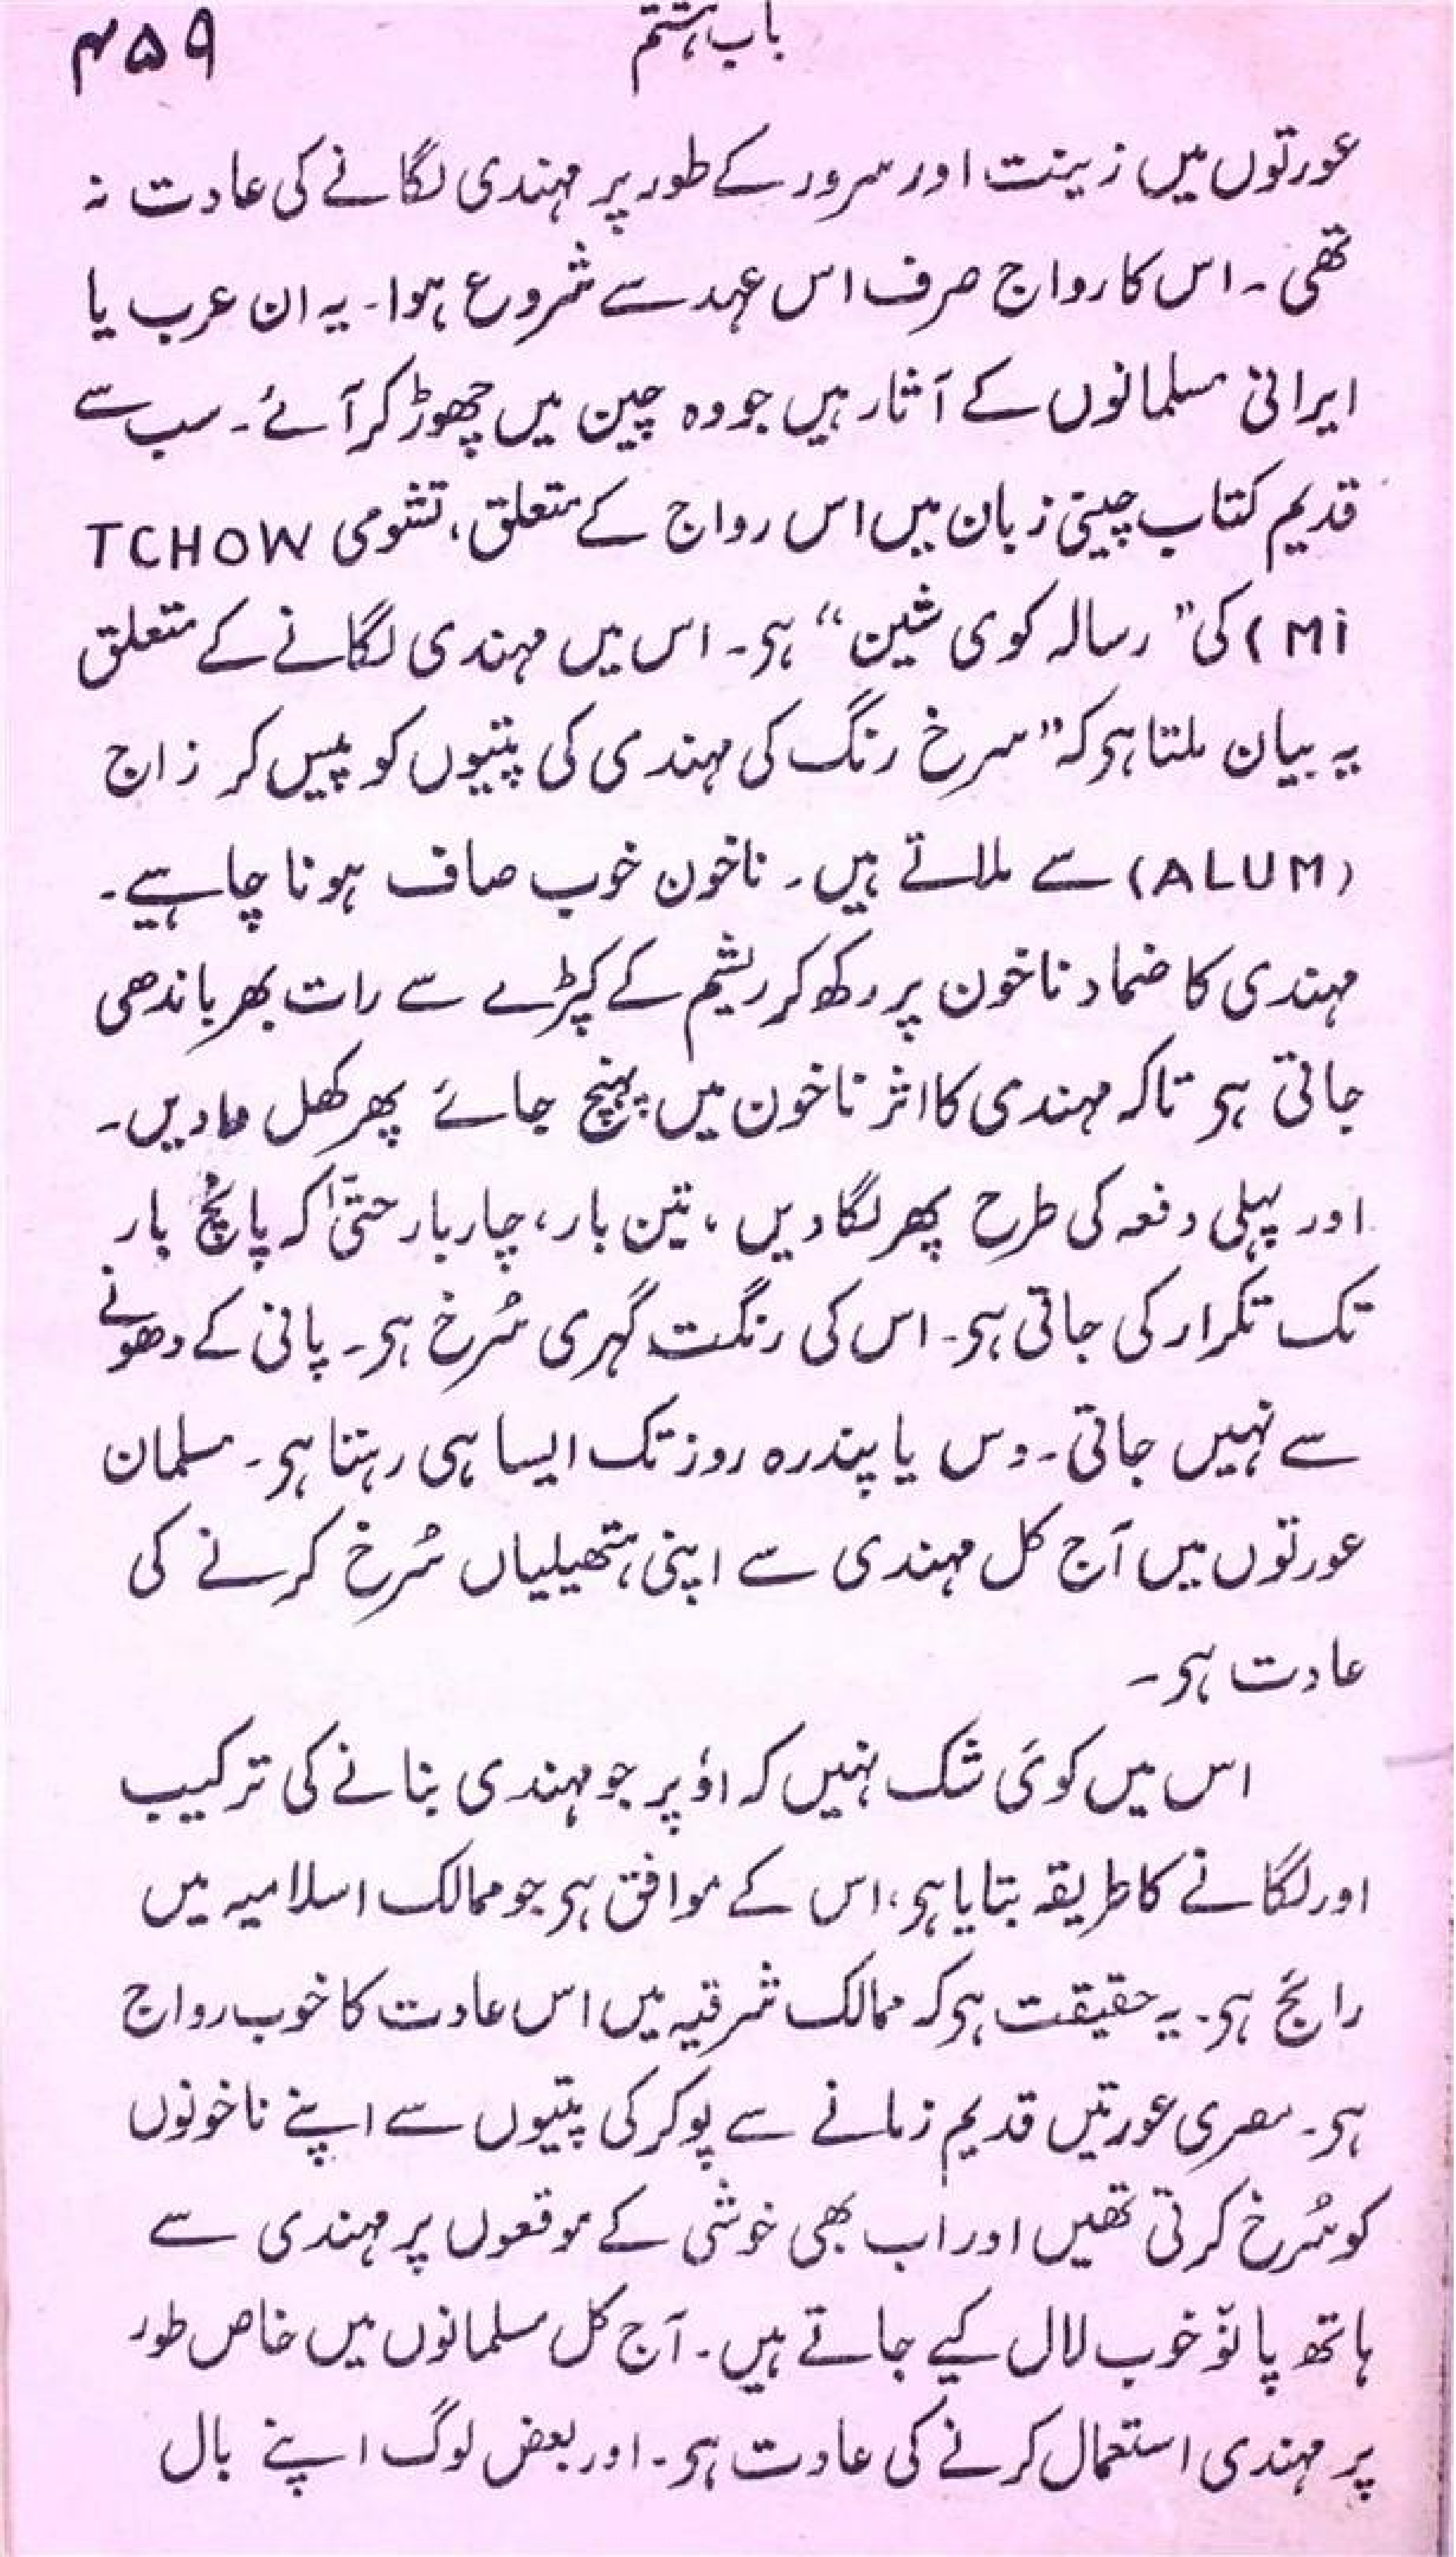 باب ہشتم
۴۵۹
عورتوں میں زینت اور سرور کے طور پر مہندی لگانے کی عادت نہ
تھی ۔ اس کا رواج صرف اس عہد سے شروع ہوا ۔ یہ ان عرب یا
ایرانی مسلمانوں کے آثار ہیں جو وہ چین میں چھوڑ کر آئے ۔ سب سے
قدیم کتاب چینی زبان میں اس رواج کے متعلق، تشومی TCHOW
Mi) کی ”رسالہ کوی شین“ ہی ۔ اس میں مہندی لگانے کے متعلق
یہ بیان ملتا ہی کہ ”سرخ رنگ کی مہندی کی پتیوں کو پیس کر زاج
(ALUM) سے ملاتے ہیں ۔ ناخون خوب صاف ہونا چاہیے ۔
مہندی کا ضماد ناخون پر رکھ کر ریشم کے کپڑے سے رات بھر باندھی
جاتی ہی تاکہ مہندی کا اثر ناخون میں پہنچ جائے پھر کھل مادیں ۔
اور پہلی دفعہ کی طرح پھر لگا دیں ، تین بار، چار بار حتّیٰ کہ پانچ بار
تک تکرار کی جاتی ہی ۔ اس کی رنگت گہری سُرخ ہی ۔ پانی کے دھونے
سے نہیں جاتی ۔ دس یا پندرہ روز تک ایسا ہی رہتا ہی ۔ مسلمان
عورتوں میں آج کل مہندی سے اپنی ہتھیلیاں سُرخ کرنے کی
عادت ہی ۔
اس میں کوئی شک نہیں کہ اوٗپر جو مہندی بنانے کی ترکیب
اور لگانے کا طریقہ بتایا ہی، اس کے موافق ہی جو ممالک اسلامیہ میں
رائج ہی ۔ یہ حقیقت ہی کہ ممالک شرقیہ میں اس عادت کا خوب رواج
ہی ۔ مصری عورتیں قدیم زمانے سے پوکر کی پتیوں سے اپنے ناخونوں
کو سُرخ کرتی تھیں اور اب بھی خوشی کے موقعوں پر مہندی سے
ہاتھ پانوٗ خوب لال کیے جاتے ہیں ۔ آج کل مسلمانوں میں خاص طور
پر مہندی استعمال کرنے کی عادت ہی ۔ اور بعض لوگ اپنے بال